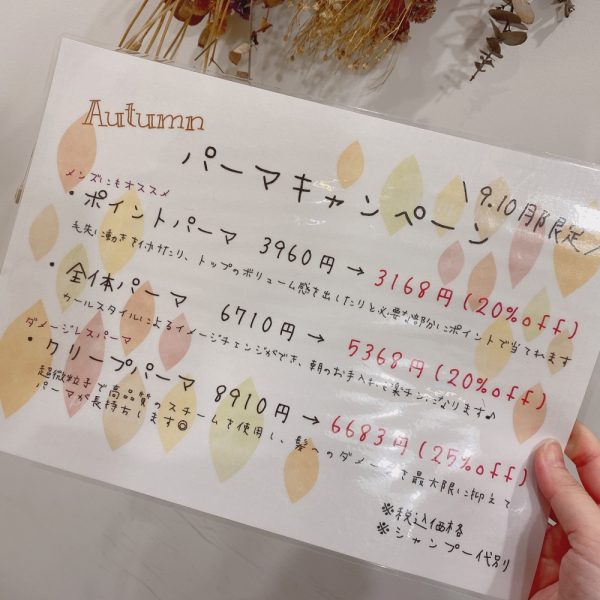 Autumn
パーマキャンペーン
\ 9.10月限定 /
メンズにもオススメ
・ポイントパーマ 3960円 → 3168円(20%off)
毛先に動きを付けたり、トップのボリューム感を出したりと必要な部分にポイントで当てれます
・全体パーマ 6710円 → 5368円(20%off)
カールスタイルによるイメージチェンジができ、朝のお手入れも楽チンになります♪
ダメージレスパーマ
・クリープパーマ 8910円 → 6683円(25%off)
超微粒子で高品質のスチームを使用し、髪へのダメージを最大限に抑えて
パーマが長持ちします◎
※税込価格
※シャンプー代別